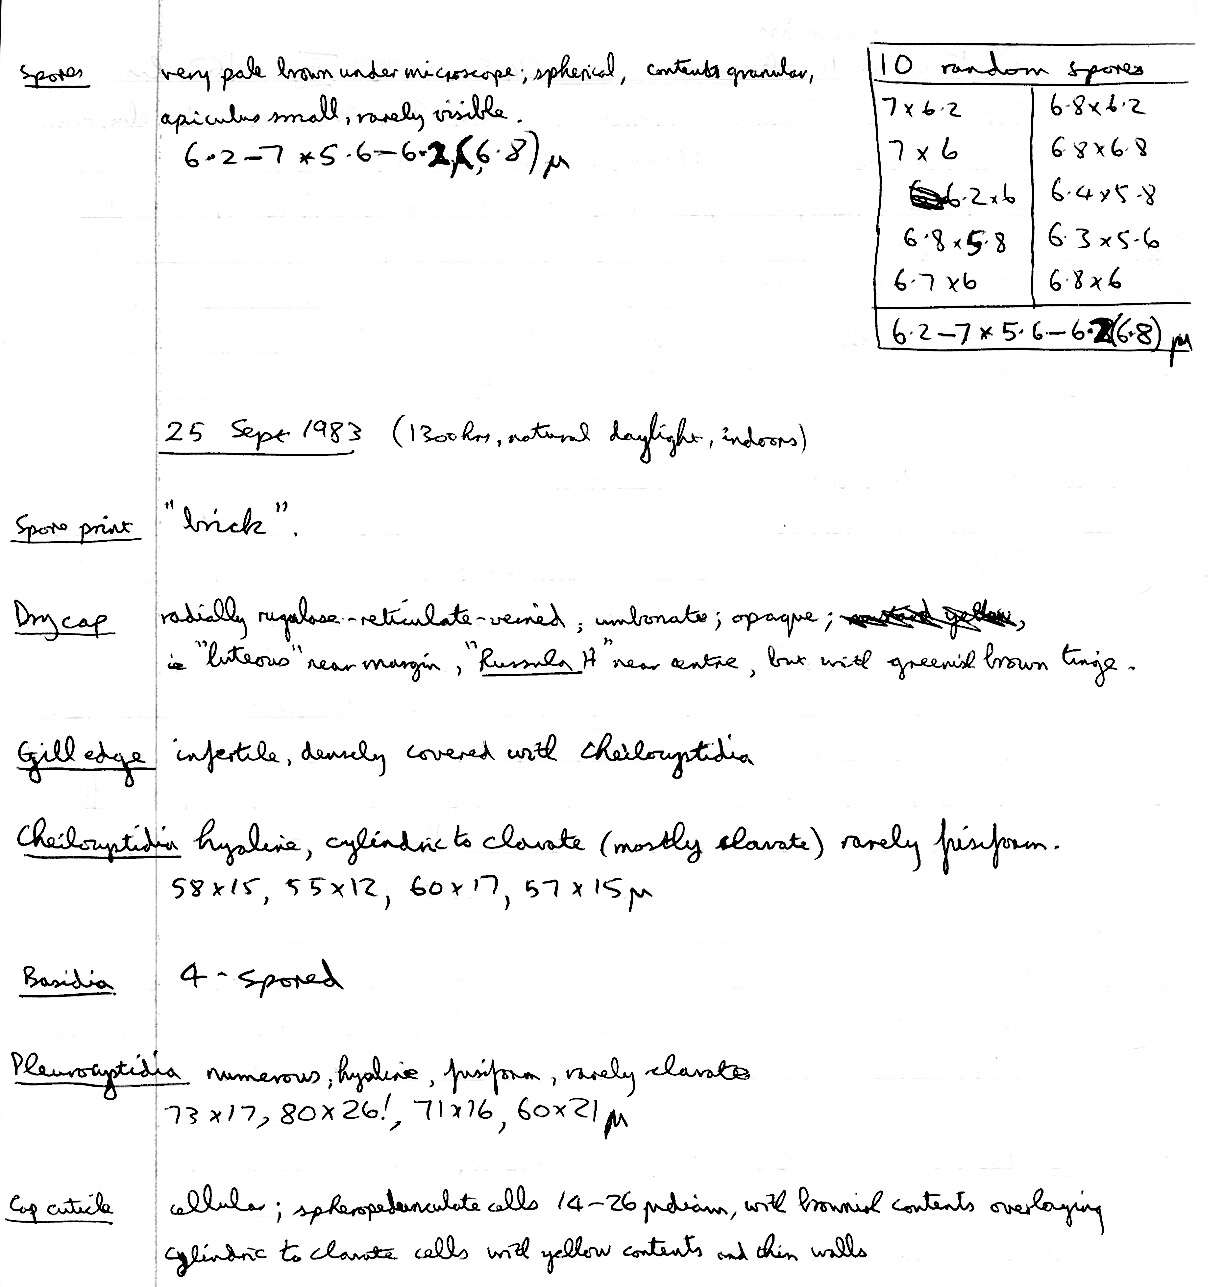 Spores very pale brown under microscope; spherical, contents granular,
apiculus small, rarely visible.
6.2-7 × 5.6-6.2,(6.8) μ
10 random spores
7 × 6.2 6.8 × 6.2
7 × 6 6.8 × 6.8
6.2 × 6 6.4 × 5.8
6.8 × 5.8 6.3 × 5.6
6.7 × 6 6.8 × 6
6.2-7 × 5.6-6.2(6.8) μ
25 Sept 1983 (1300 hrs, natural daylight, indoors)
Spore print "brick".
Dry cap radially rugulose-reticulate-veined; umbonate; opaque; mustard yellow,
is "luteous" near margin, "Russula H" near centre, but with greenish brown tinge.
Gill edge infertile, densely covered with cheilocystidia
Cheilocystidia hyaline, cylindric to clavate (mostly clavate) rarely fusiform.
58×15, 55×12, 60×17, 57×15 μ
Basidia 4-spored
Pleurocystidia numerous, hyaline, fusiform, rarely clavate
73×17, 80×26!, 71×16, 60×21 μ
Cap cuticle cellular; spheropedunculate cells 14-26 μ diam, with brownish contents overlanging
cylindric to clavate cells with yellow contents and thin walls